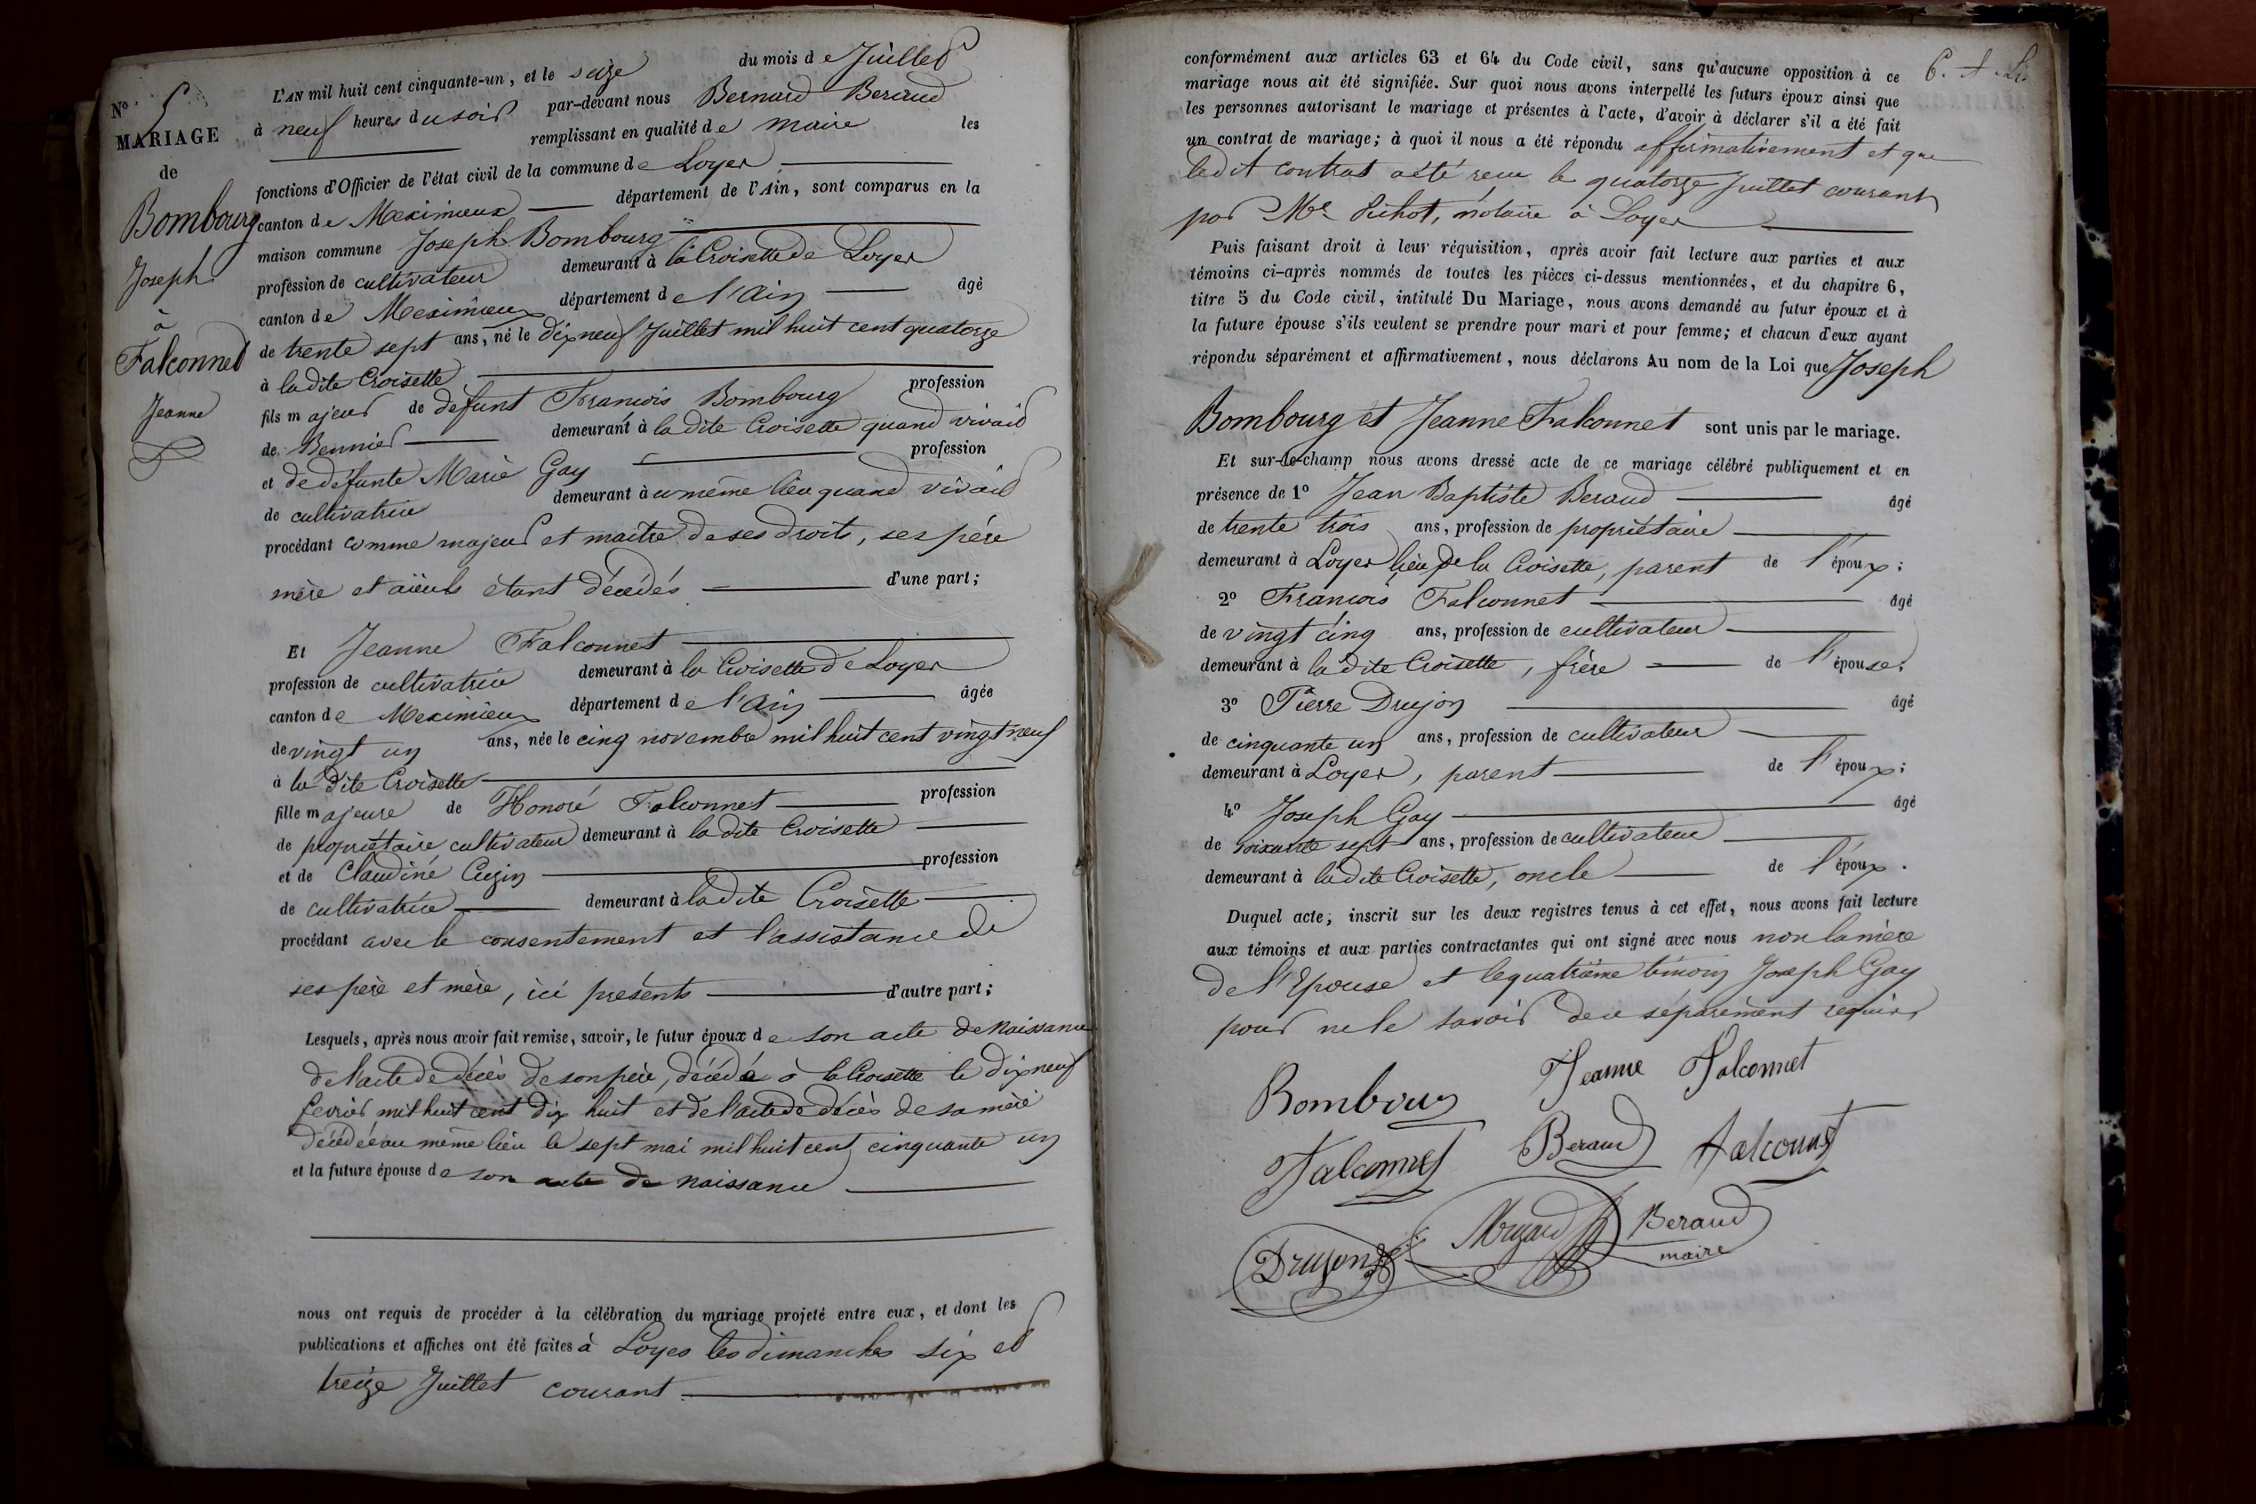 Nº 5
MARIAGE
de
Bombourg
Joseph
à
Falconnet
Jeanne
L'AN mil huit cent cinquante-un, et le seize du mois de Juillet
à neuf heures du soir par-devant nous Bernard Beraud
remplissant en qualité de maire les
fonctions d'Officier de l'état civil de la commune de Loyes
canton de Meximieux département de l'Ain, sont comparus en la
maison commune Joseph Bombourg
profession de cultivateur demeurant à la Croisette de Loyes
canton de Meximieux département de l'Ain âgé
de trente sept ans, né le dix neuf Juillet mil huit cent quatorze
à la dite Croisette
fils majeur de défunt François Bombourg profession
de demeurant à la dite Croisette quand vivait
et de défunte Marie Gay profession
de cultivatrice demeurant au même lieu quand vivait
procédant comme majeur et maitre de ses droits, ses père
mère et aïeuls étant décédés d'une part;
Et Jeanne Falconnet
profession de cultivatrice demeurant à la Croisette de Loyes
canton de Meximieux département de l'Ain âgée
de vingt un ans, née le cinq novembre mil huit cent vingt neuf
à la dite Croisette
fille majeure de Honoré Falconnet profession
de propriétaire cultivateur demeurant à la dite Croisette
et de Claudine Cuzin profession
de cultivatrice demeurant à la dite Croisette
procédant avec le consentement et l'assistance de
ses père et mère, ici présents d'autre part;
Lesquels, après nous avoir fait remise, savoir, le futur époux de son acte de Naissance
de l'acte de décès de son père, décédé à la Croisette le dix neuf
fevrier mil huit cent dix huit et de l'acte de décès de sa mère
décédée au même lieu le sept mai mil huit cent cinquante un
et la future épouse de son acte de naissance
nous ont requis de procéder à la célébration du mariage projeté entre eux, et dont les
publications et affiches ont été faites à Loyes les dimanches six et
treize Juillet courant
conformément aux articles 63 et 64 du Code civil, sans qu'aucune opposition à ce
mariage nous ait été signifiée. Sur quoi nous avons interpellé les futurs époux ainsi que
les personnes autorisant le mariage et présentes à l'acte, d'avoir à déclarer s'il a été fait
un contrat de mariage; à quoi il nous a été répondu affirmativement et que
ledit contrat a été reçu le quatorze Juillet courant
par Me Pichot, notaire à Loyes
Puis faisant droit à leur réquisition, après avoir fait lecture aux parties et aux
témoins ci-après nommés de toutes les pièces ci-dessus mentionnées, et du chapitre 6,
titre 5 du Code civil, intitulé Du Mariage, nous avons demandé au futur époux et à
la future épouse s'ils veulent se prendre pour mari et pour femme; et chacun d'eux ayant
répondu séparément et affirmativement, nous déclarons Au nom de la Loi que Joseph
Bombourg et Jeanne Falconnet sont unis par le mariage.
Et sur-le-champ nous avons dressé acte de ce mariage célébré publiquement et en
présence de 1º Jean Baptiste Beraud âgé
de trente trois ans, profession de propriétaire
demeurant à Loyes lieu de la Croisette, parent de l'époux;
2º François Falconnet âgé
de vingt cinq ans, profession de cultivateur
demeurant à la dite Croisette, frère de l'épouse;
3º Pierre Drujon âgé
de cinquante un ans, profession de cultivateur
demeurant à Loyes, parent de l'époux;
4º Joseph Gay âgé
de soixante sept ans, profession de cultivateur
demeurant à la dite Croisette, oncle de l'époux.
Duquel acte; inscrit sur les deux registres tenus à cet effet, nous avons fait lecture
aux témoins et aux parties contractantes qui ont signé avec nous non la mère
de l'Epouse et le quatrième témoin Joseph Gay
pour ne le savoir de ce séparément requis
Bombourg Jeanne Falconnet
Falconnet Beraud Falconnet
Drujon Beraud
maire